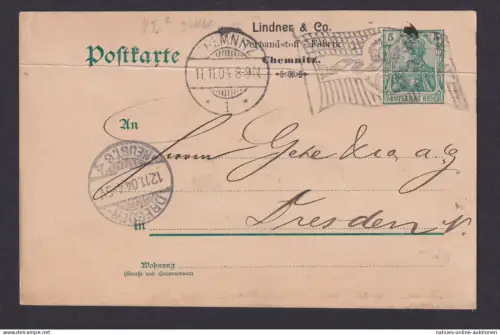 Lindner & Co.
Verbandstoff-Fabrik
Chemnitz.
Postkarte
CHEMNITZ
11.11.04. 8-9N.
1
5
DEUTSCHES REICH
An
Herrn Gehe & Co a. G.
DRESDEN-NEUST. 8
12.11.04.
in
Dresden N.
Wohnung
(Straße und Hausnummer)
nahues-auktionen
nahues-online-auktionen.de